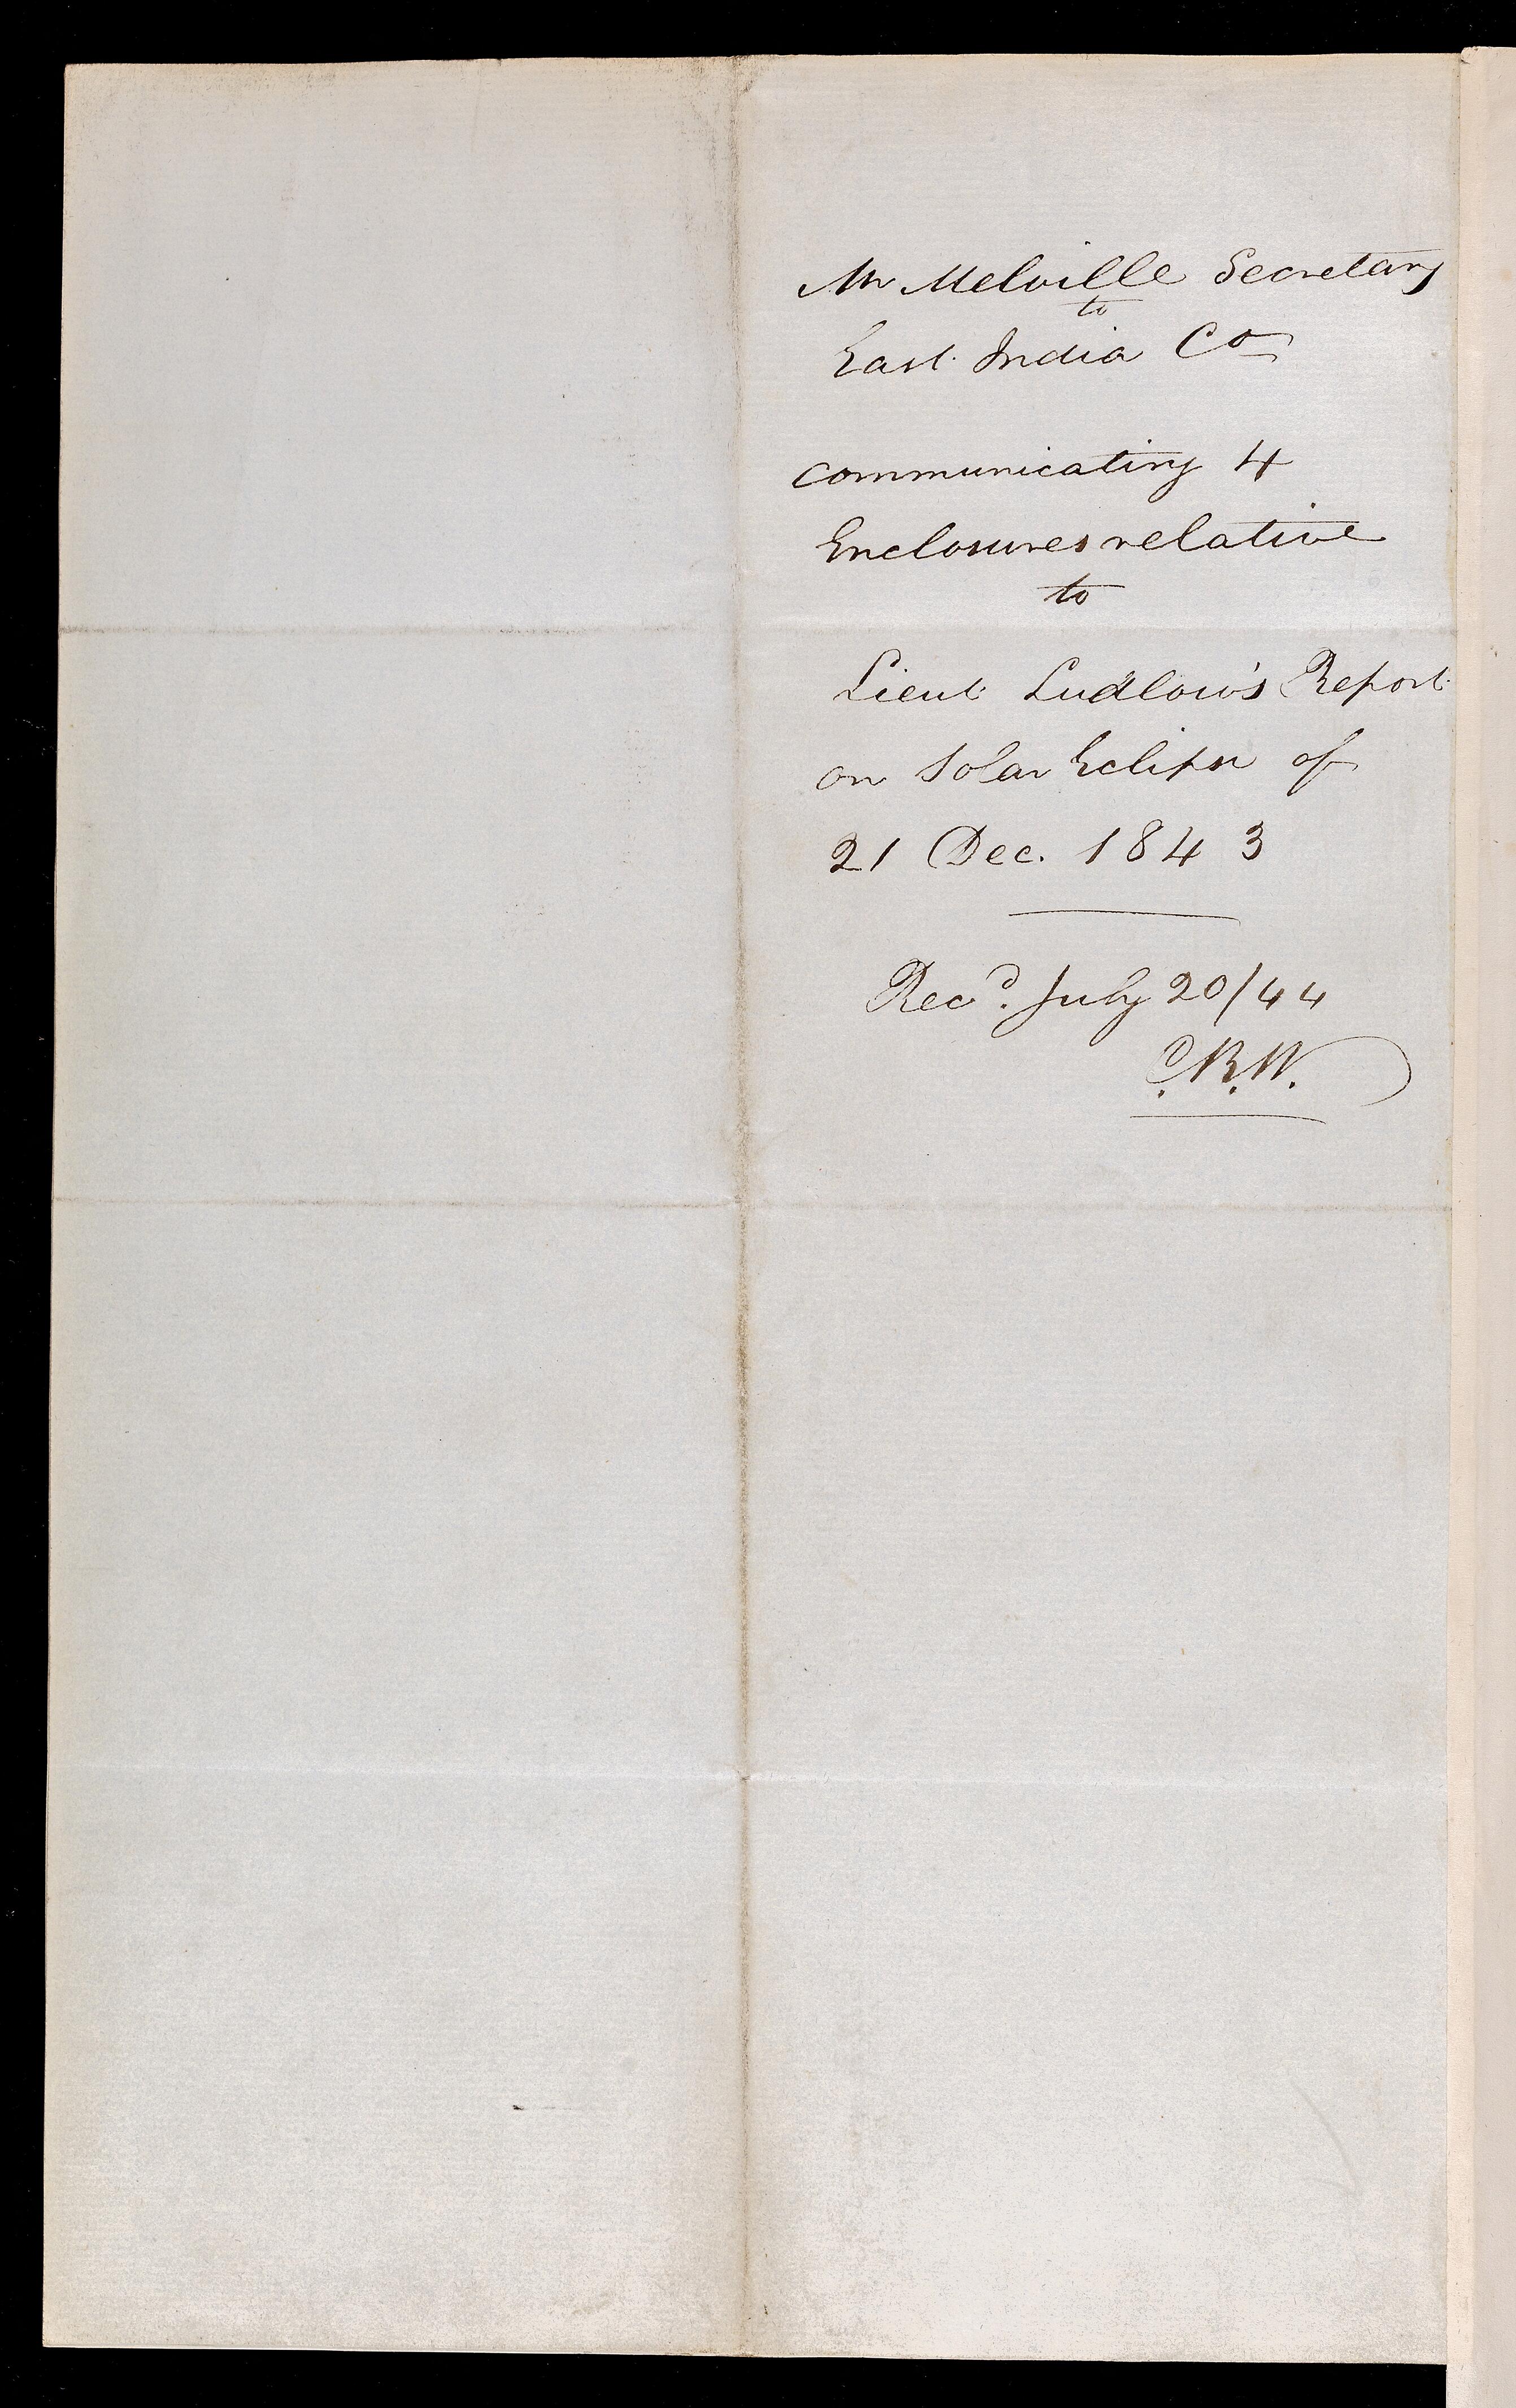 Mr Melville Secretary
to
East India Co
communicating 4
Enclosures relative
to
Lieut Ludlow's Report
on Solar Eclipse of
21 Dec. 1843
Recd. July 20/44
C.R.W.